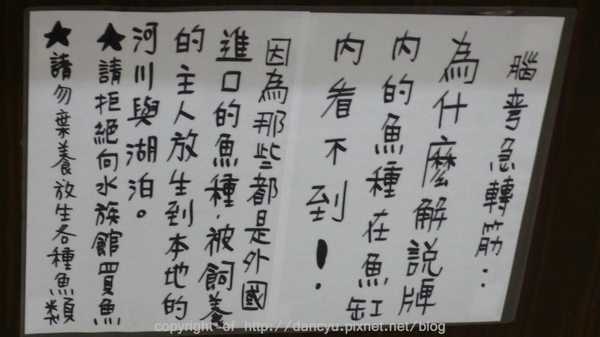 腦弯急轉筋：
為什麼解說牌
內的魚種在魚缸
內看不到！
因為那些都是外國
進口的魚種，被飼養
的主人放生到本地的
河川與湖泊。
★請拒絕向水族館買魚
★請勿棄養放生各種魚類
copyright of http://dancyu.pixnet.net/blog